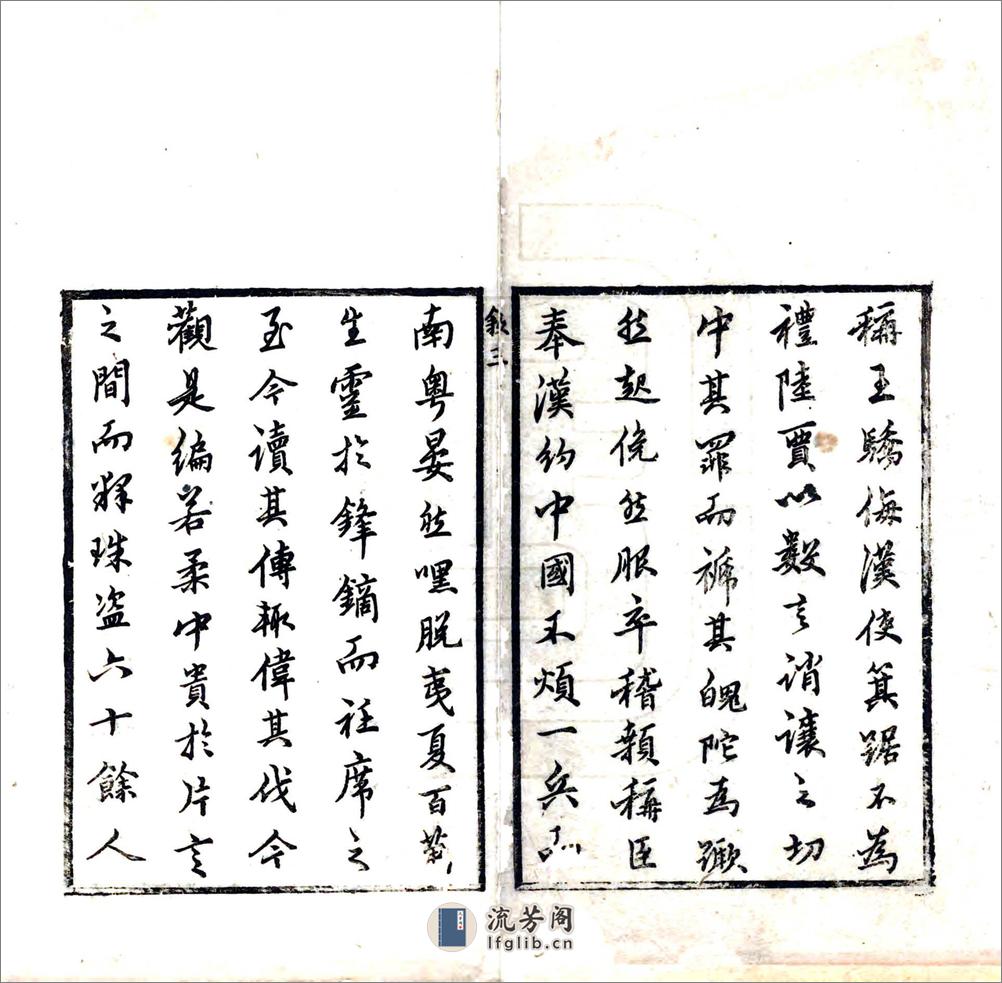 稱王驕侮漢使箕踞不為
禮陸賈以數言誚讓之切
中其罪而褫其魄陀為蹶
然起俛然服卒稽顙稱臣
奉漢約中國不煩一兵而
敘三
南粵晏然嘿脫夷夏百萬
生靈於鋒鏑而衽席之
至今讀其傳輒偉其伐今
觀是編若柔中貴於片言
之間而釋珠盜六十餘人
流芳阁
lfglib.cn